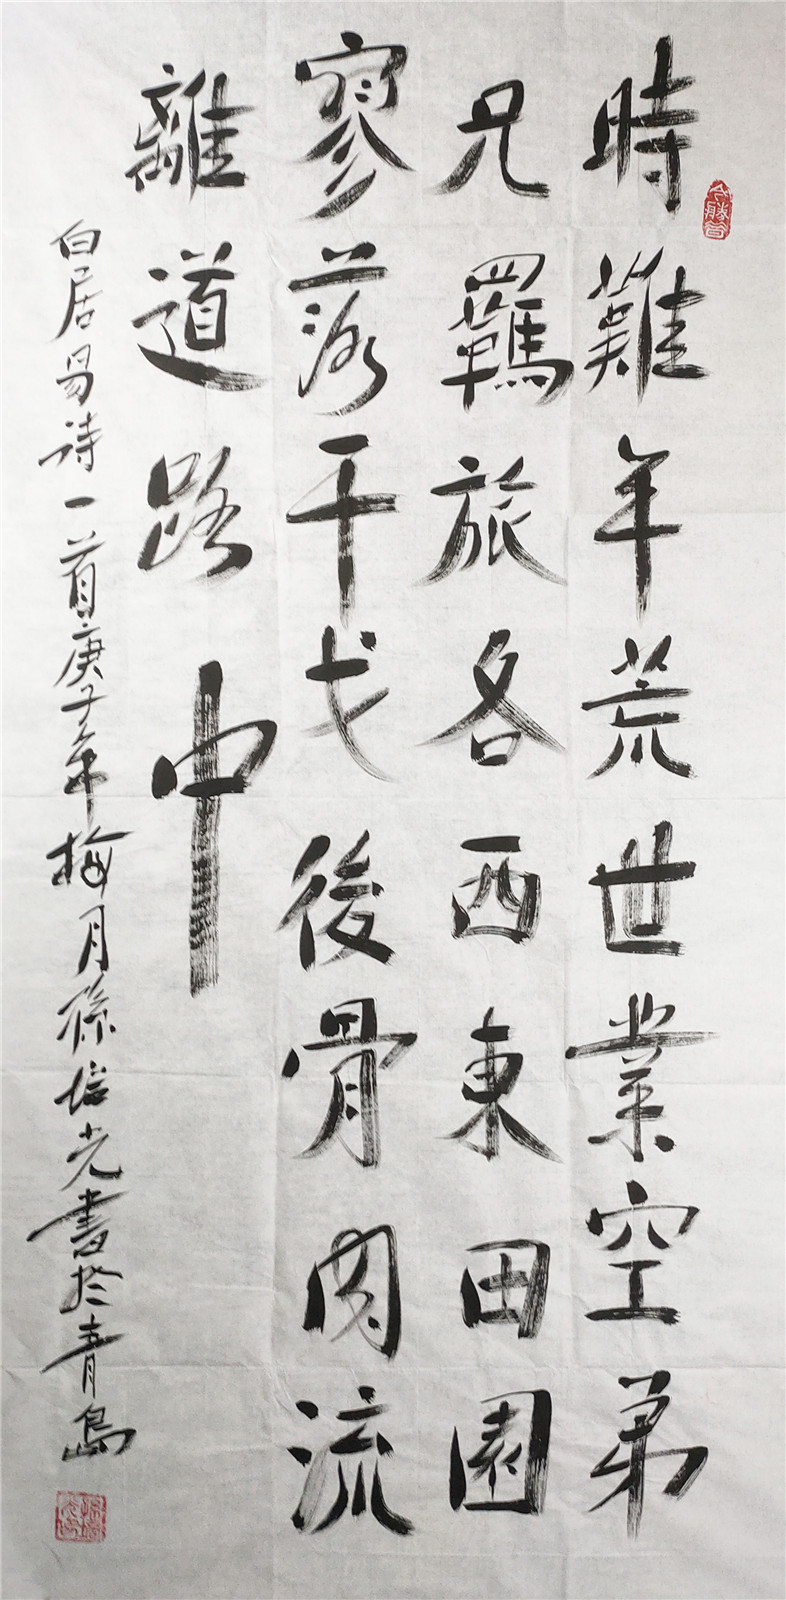 時難年荒世業空弟
兄羈旅各西東田園
寥落干戈後骨肉流
離道路中
白居易诗一首庚子年梅月孫信光書於青島